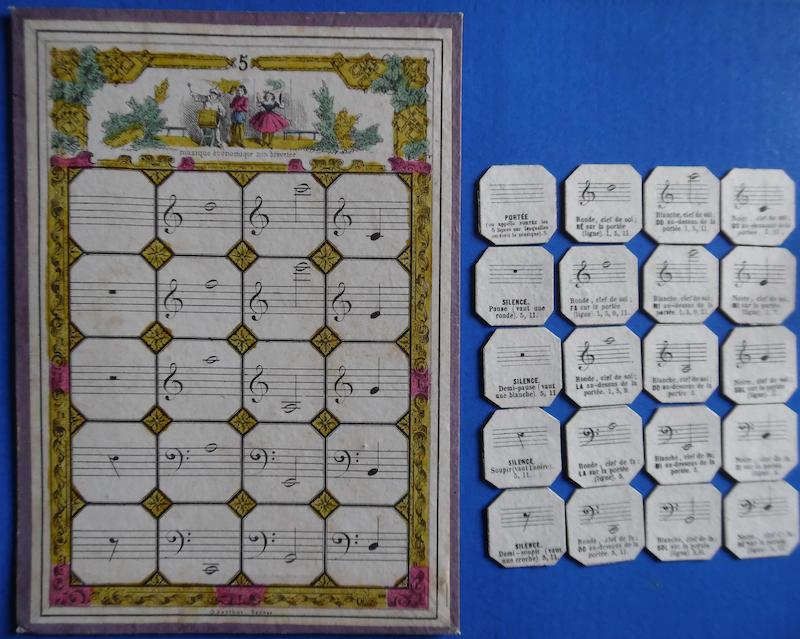 5
musique économique non brevetée
PORTÉE
(on appelle PORTÉE les
5 lignes sur lesquelles
on écrit la musique). 5.
Ronde, clef de sol;
RÉ sur la portée
(ligne). 1, 5, 11.
Blanche, clef de sol;
DO au-dessus de la
portée. 1, 5, 11.
Noire, clef de sol;
portée.
SILENCE.
Pause (vaut une
ronde). 5, 11.
Ronde, clef de sol;
FA sur la portée
(ligne). 1, 5, 9, 11.
Blanche, clef de sol;
MI au-dessus de la
portée.
Noire, clef de sol;
SILENCE.
Demi-pause (vaut
une blanche). 5, 11
Ronde, clef de sol;
LA au-dessus de la
portée. 1, 5, 9.
Blanche, clef de sol;
DO au-dessous de la
portée. 5.
Noire, clef de sol;
SOL sur la portée
SILENCE.
Soupir (vaut 1 noire).
5, 11.
Ronde, clef de fa;
LA sur la portée
(ligne). 5.
Blanche, clef de fa;
MI au-dessous de la
portée. 5.
Noire, clef de fa;
sur la portée
SILENCE.
Demi-soupir (vaut
une croche). 5, 11.
Ronde, clef de fa;
DO au-dessous de la
portée. 5, 11.
Blanche, clef de fa;
SOL sur la portée
Noire, clef de fa;
sur la portée